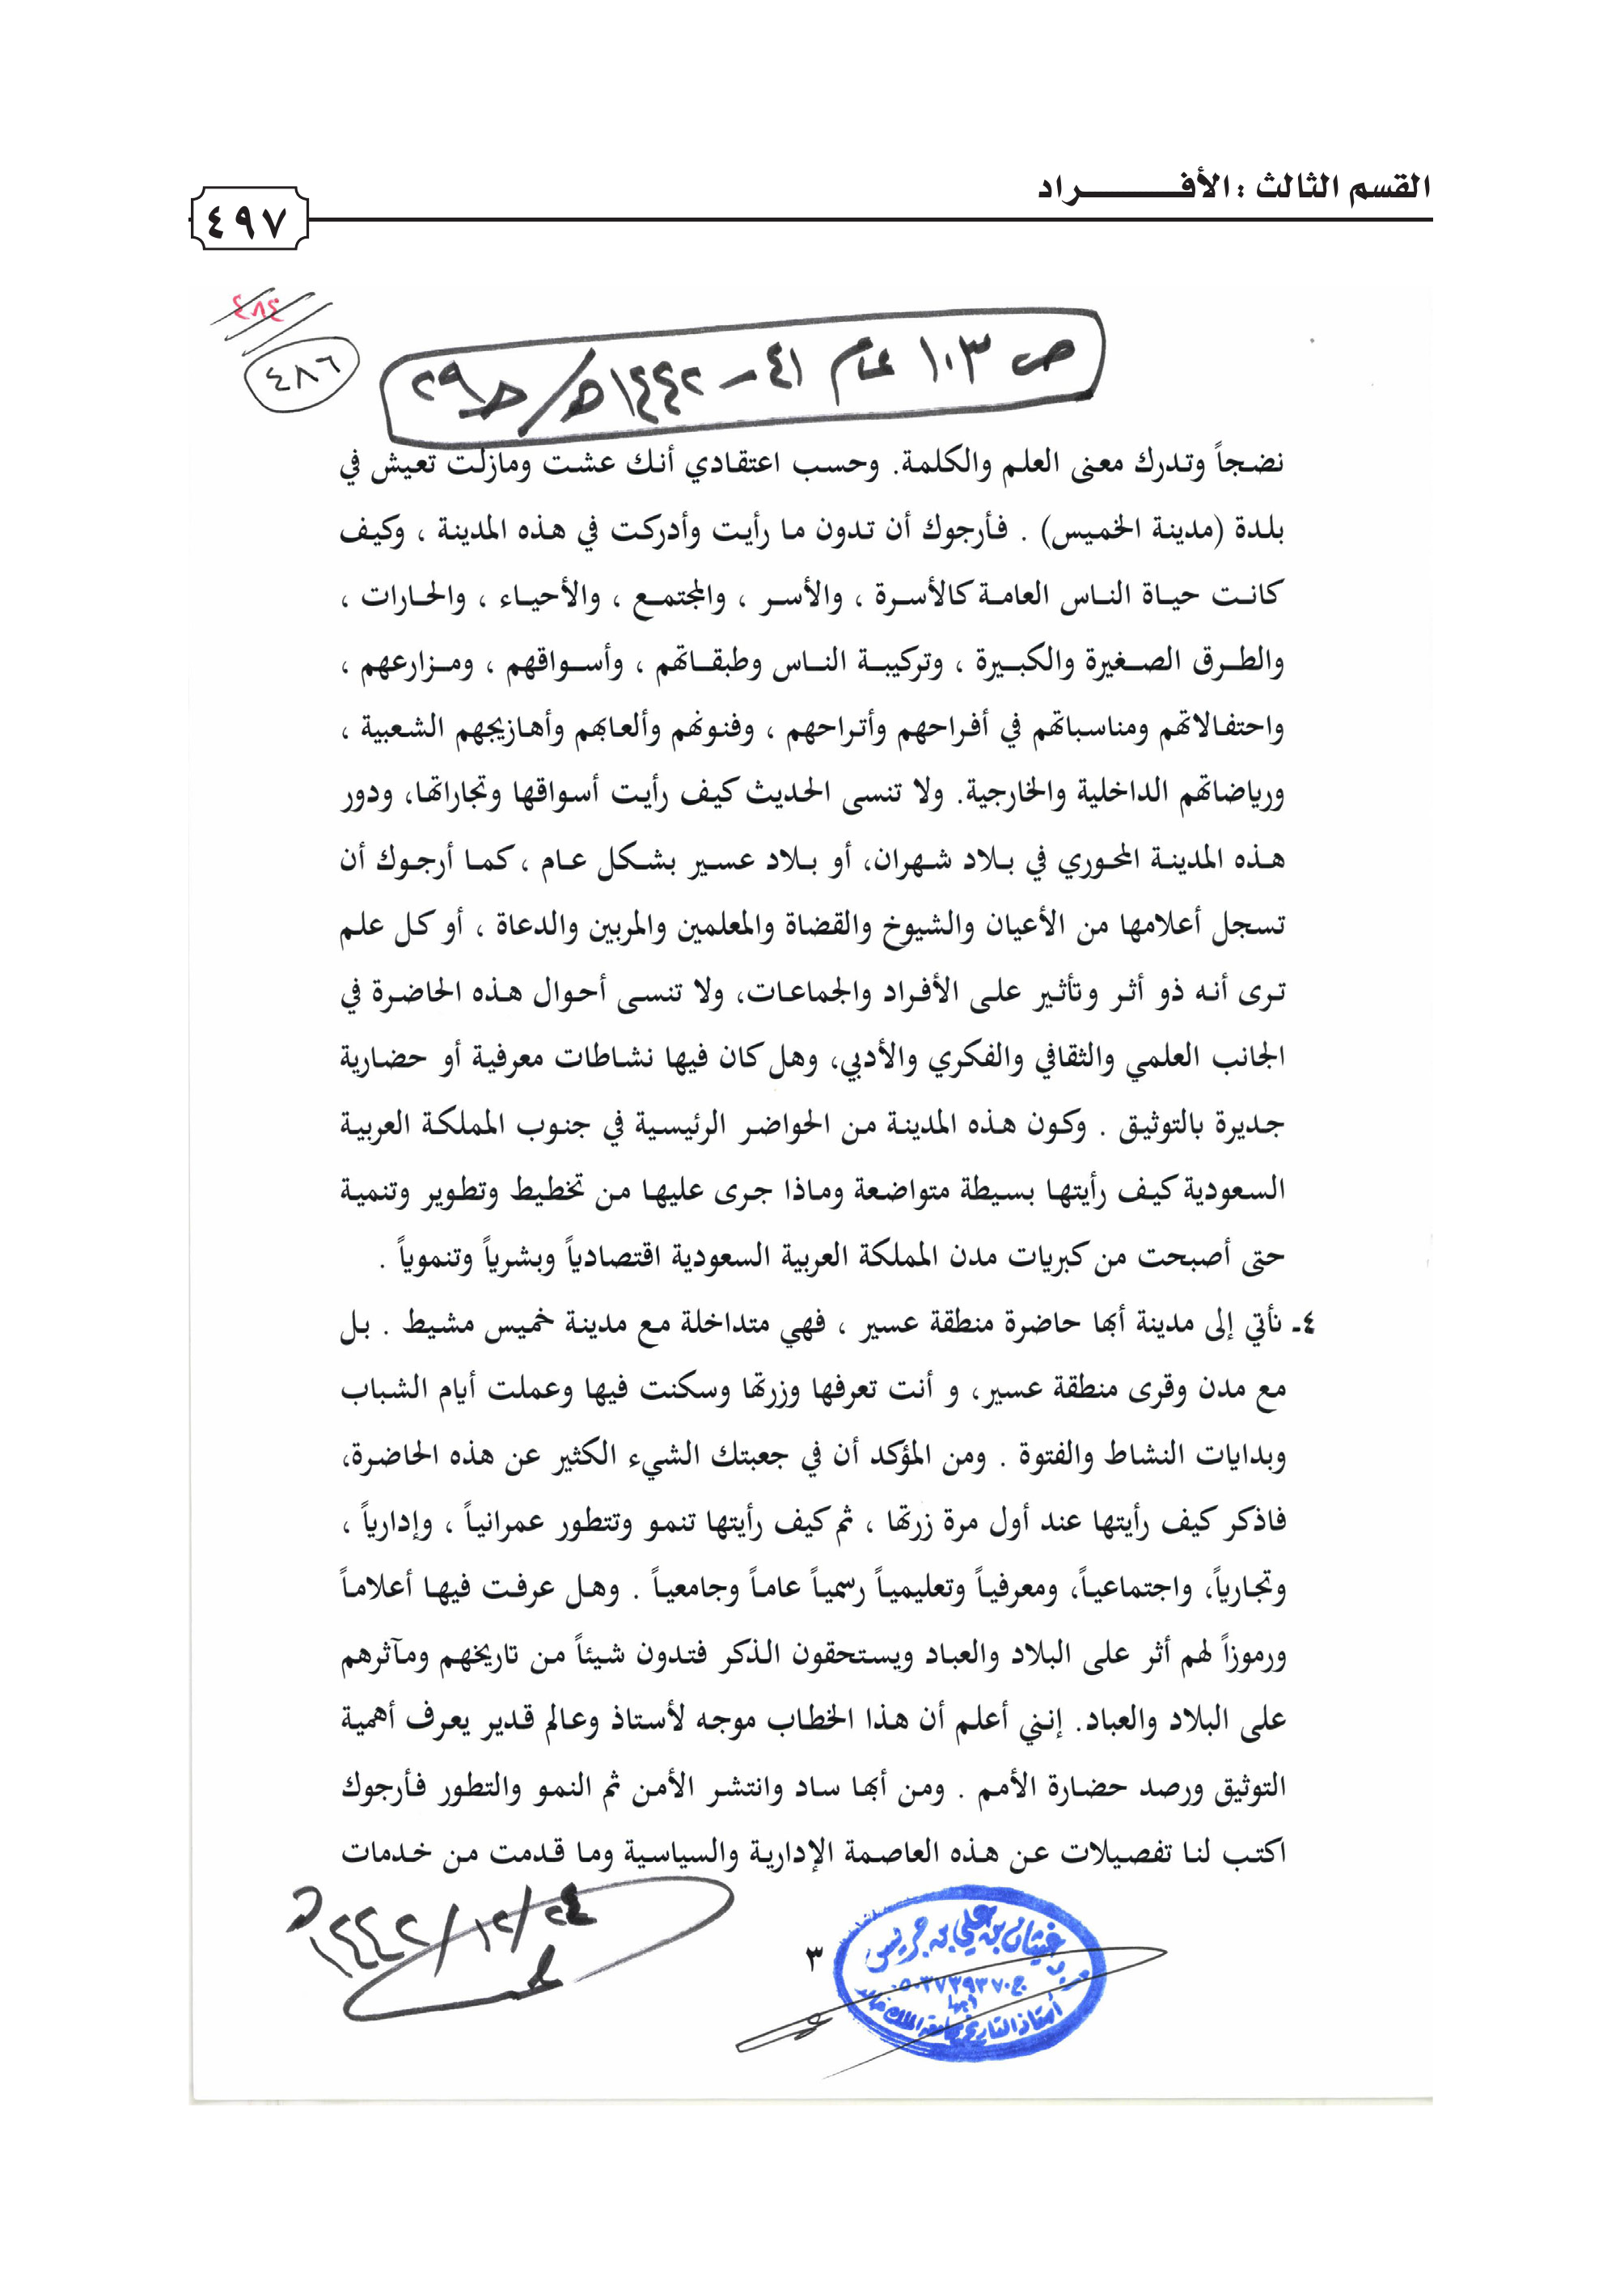 القسم الثالث : الأفـــــــــراد
٤٩٧
٤٨٤
٤٨٦
ص ١٠٣ عام ٤١ – ١٤٤٢هـ / حـ ٢٩
نضجاً وتدرك معنى العلم والكلمة. وحسب اعتقادي أنك عشت ومازلت تعيش في
بلدة (مدينة الخميس) . فأرجوك أن تدون ما رأيت وأدركت في هذه المدينة ، وكيف
كانت حياة الناس العامة كالأسرة ، والأسر ، والمجتمع ، والأحياء ، والحارات ،
والطرق الصغيرة والكبيرة ، وتركيبة الناس وطبقاتهم ، وأسواقهم ، ومزارعهم ،
واحتفالاتهم ومناسباتهم في أفراحهم وأتراحهم ، وفنونهم وألعابهم وأهازيجهم الشعبية ،
ورياضاتهم الداخلية والخارجية. ولا تنسى الحديث كيف رأيت أسواقها وتجاراتها، ودور
هذه المدينة المحوري في بلاد شهران، أو بلاد عسير بشكل عام ، كما أرجوك أن
تسجل أعلامها من الأعيان والشيوخ والقضاة والمعلمين والمربين والدعاة ، أو كل علم
ترى أنه ذو أثر وتأثير على الأفراد والجماعات، ولا تنسى أحوال هذه الحاضرة في
الجانب العلمي والثقافي والفكري والأدبي، وهل كان فيها نشاطات معرفية أو حضارية
جديرة بالتوثيق . وكون هذه المدينة من الحواضر الرئيسية في جنوب المملكة العربية
السعودية كيف رأيتها بسيطة متواضعة وماذا جرى عليها من تخطيط وتطوير وتنمية
حتى أصبحت من كبريات مدن المملكة العربية السعودية اقتصادياً وبشرياً وتنموياً .
٤ـ نأتي إلى مدينة أبها حاضرة منطقة عسير ، فهي متداخلة مع مدينة خميس مشيط . بل
مع مدن وقرى منطقة عسير، و أنت تعرفها وزرتها وسكنت فيها وعملت أيام الشباب
وبدايات النشاط والفتوة . ومن المؤكد أن في جعبتك الشيء الكثير عن هذه الحاضرة،
فاذكر كيف رأيتها عند أول مرة زرتها ، ثم كيف رأيتها تنمو وتتطور عمرانياً ، وإدارياً ،
وتجارياً، واجتماعياً، ومعرفياً وتعليمياً رسمياً عاماً وجامعياً . وهل عرفت فيها أعلاماً
ورموزاً لهم أثر على البلاد والعباد ويستحقون الذكر فتدون شيئاً من تاريخهم ومآثرهم
على البلاد والعباد. إنني أعلم أن هذا الخطاب موجه لأستاذ وعالم قدير يعرف أهمية
التوثيق ورصد حضارة الأمم . ومن أبها ساد وانتشر الأمن ثم النمو والتطور فأرجوك
اكتب لنا تفصيلات عن هذه العاصمة الإدارية والسياسية وما قدمت من خدمات
١٤٤٢/١٢/٢٤هـ
٣
غيثان بن علي بن جريس
ج ٠٥٠٣٧٣٩٣٧٠
أبها
أستاذ التاريخ بجامعة الملك خالد